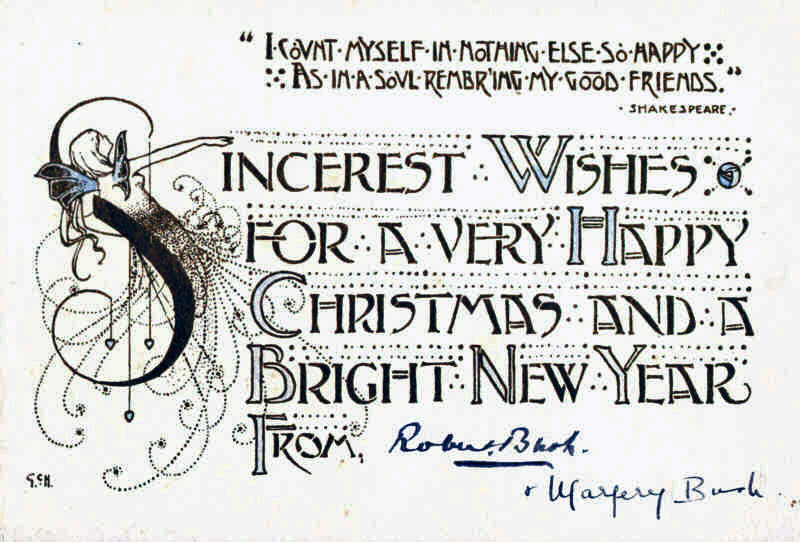 "I·COUNT·MYSELF·IN·NOTHING·ELSE·SO·HAPPY
AS·IN·A·SOUL·REMBR'ING·MY·GOOD·FRIENDS."
·SHAKESPEARE·
SINCEREST WISHES
FOR A VERY HAPPY
CHRISTMAS AND A
BRIGHT NEW YEAR
FROM, Robert Bush.
+ Margery Bush.